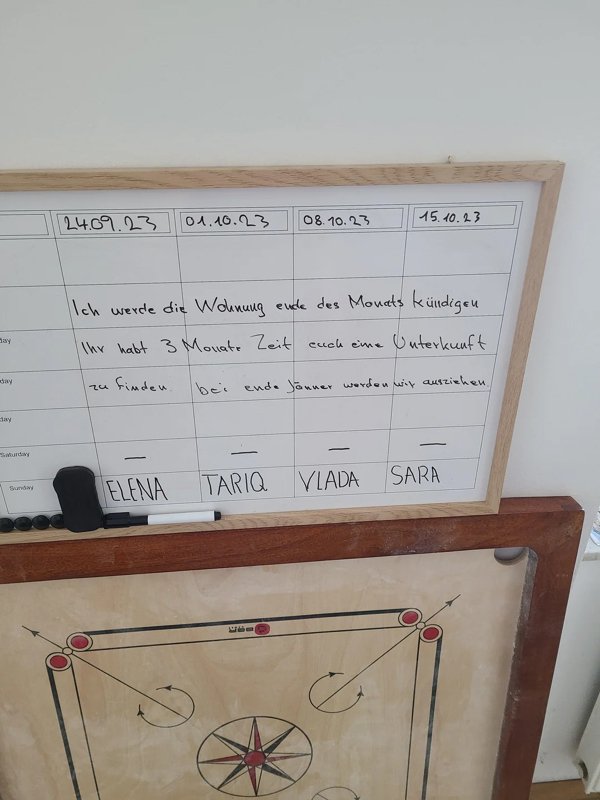 24.09.23 01.10.23 08.10.23 15.10.23
Ich werde die Wohnung ende des Monats kündigen
day
Ihr habt 3 Monate Zeit euch eine Unterkunft
day
zu finden. bei ende Jänner werden wir ausziehen
day
Saturday — — — —
Sunday ELENA TARIQ VLADA SARA